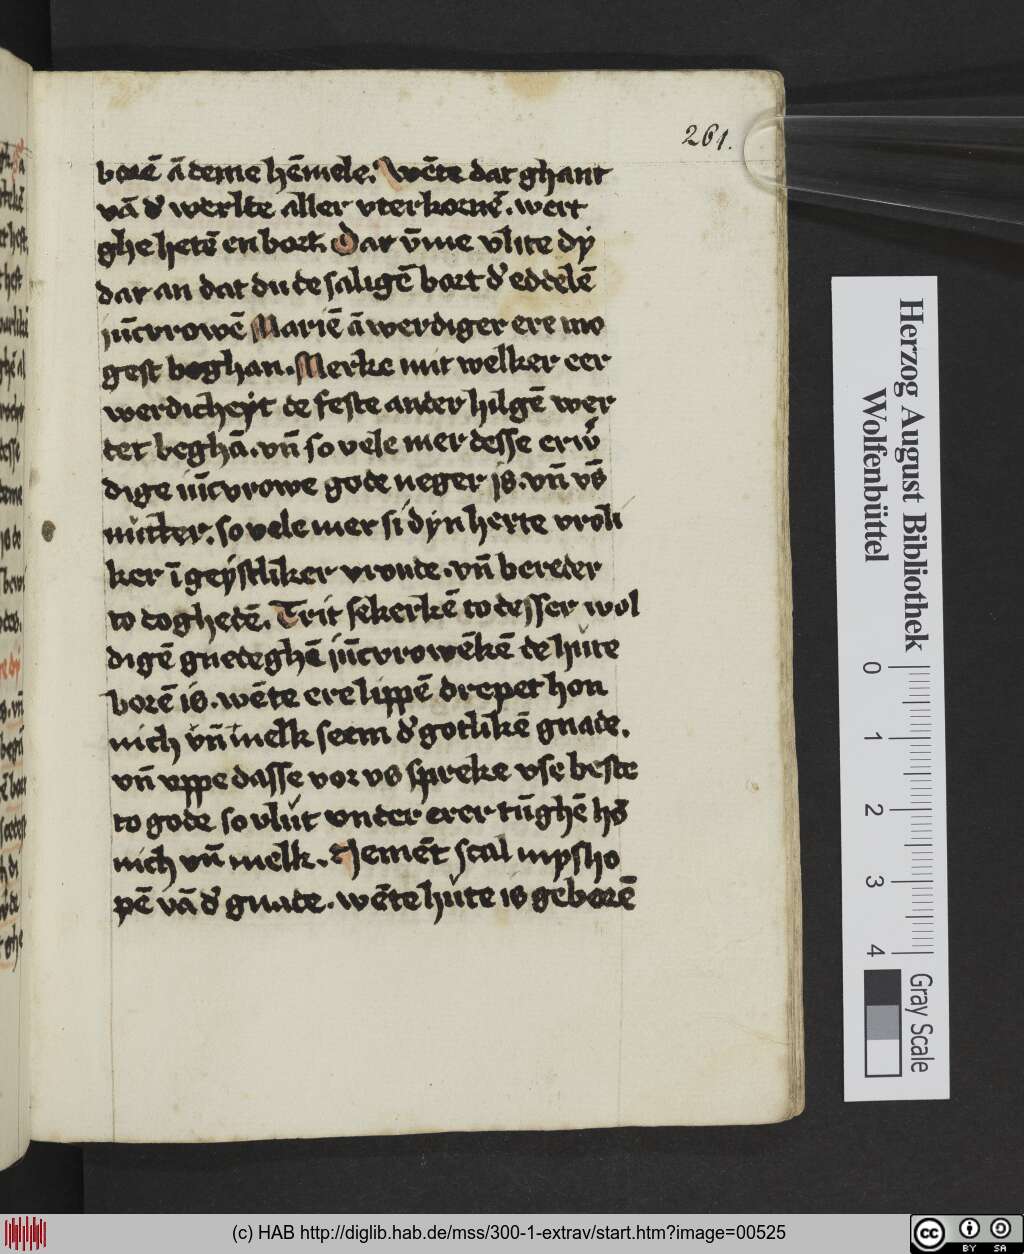 261.
borē ā deme hēmele. Wēte dat ghant
vā d' werlde aller vterkornē. wert
ghe hetē en bort. Dar v̄me vlite dÿ
dar an dat du de saligē bort d' eddelē
iūcvrowē Mariē ā werdiger ere mo
gest beghan. Merke mit welker eer
werdicheÿt de feste ander hilgē wer
det beghā. vn̄ so vele mer desse erw'
dige iūcvrowe gode neger is. vn̄ vs̄
mutter. so vele mer si dÿn herte vroli
ker ī geÿstliker vroude. vn̄ bereder
to doghedē. Trit sekerkē to desser wol
digē gnedeghē iūcvrowēkē de hute
borē is. wēte ere lippē drepet hon
nich vn̄ melk seem d' gotlikē gnade.
vn̄ vppe dasse vor vs spreke vse beste
to gode so vlut vnder erer tūghē hō
nich vn̄ melk. Nemēt scal mysho
pē vā d' gnade. wēte hute is geborē
Herzog August Bibliothek
Wolfenbüttel
0 1 2 3 4
Gray Scale
(c) HAB http://diglib.hab.de/mss/300-1-extrav/start.htm?image=00525
cc BY SA